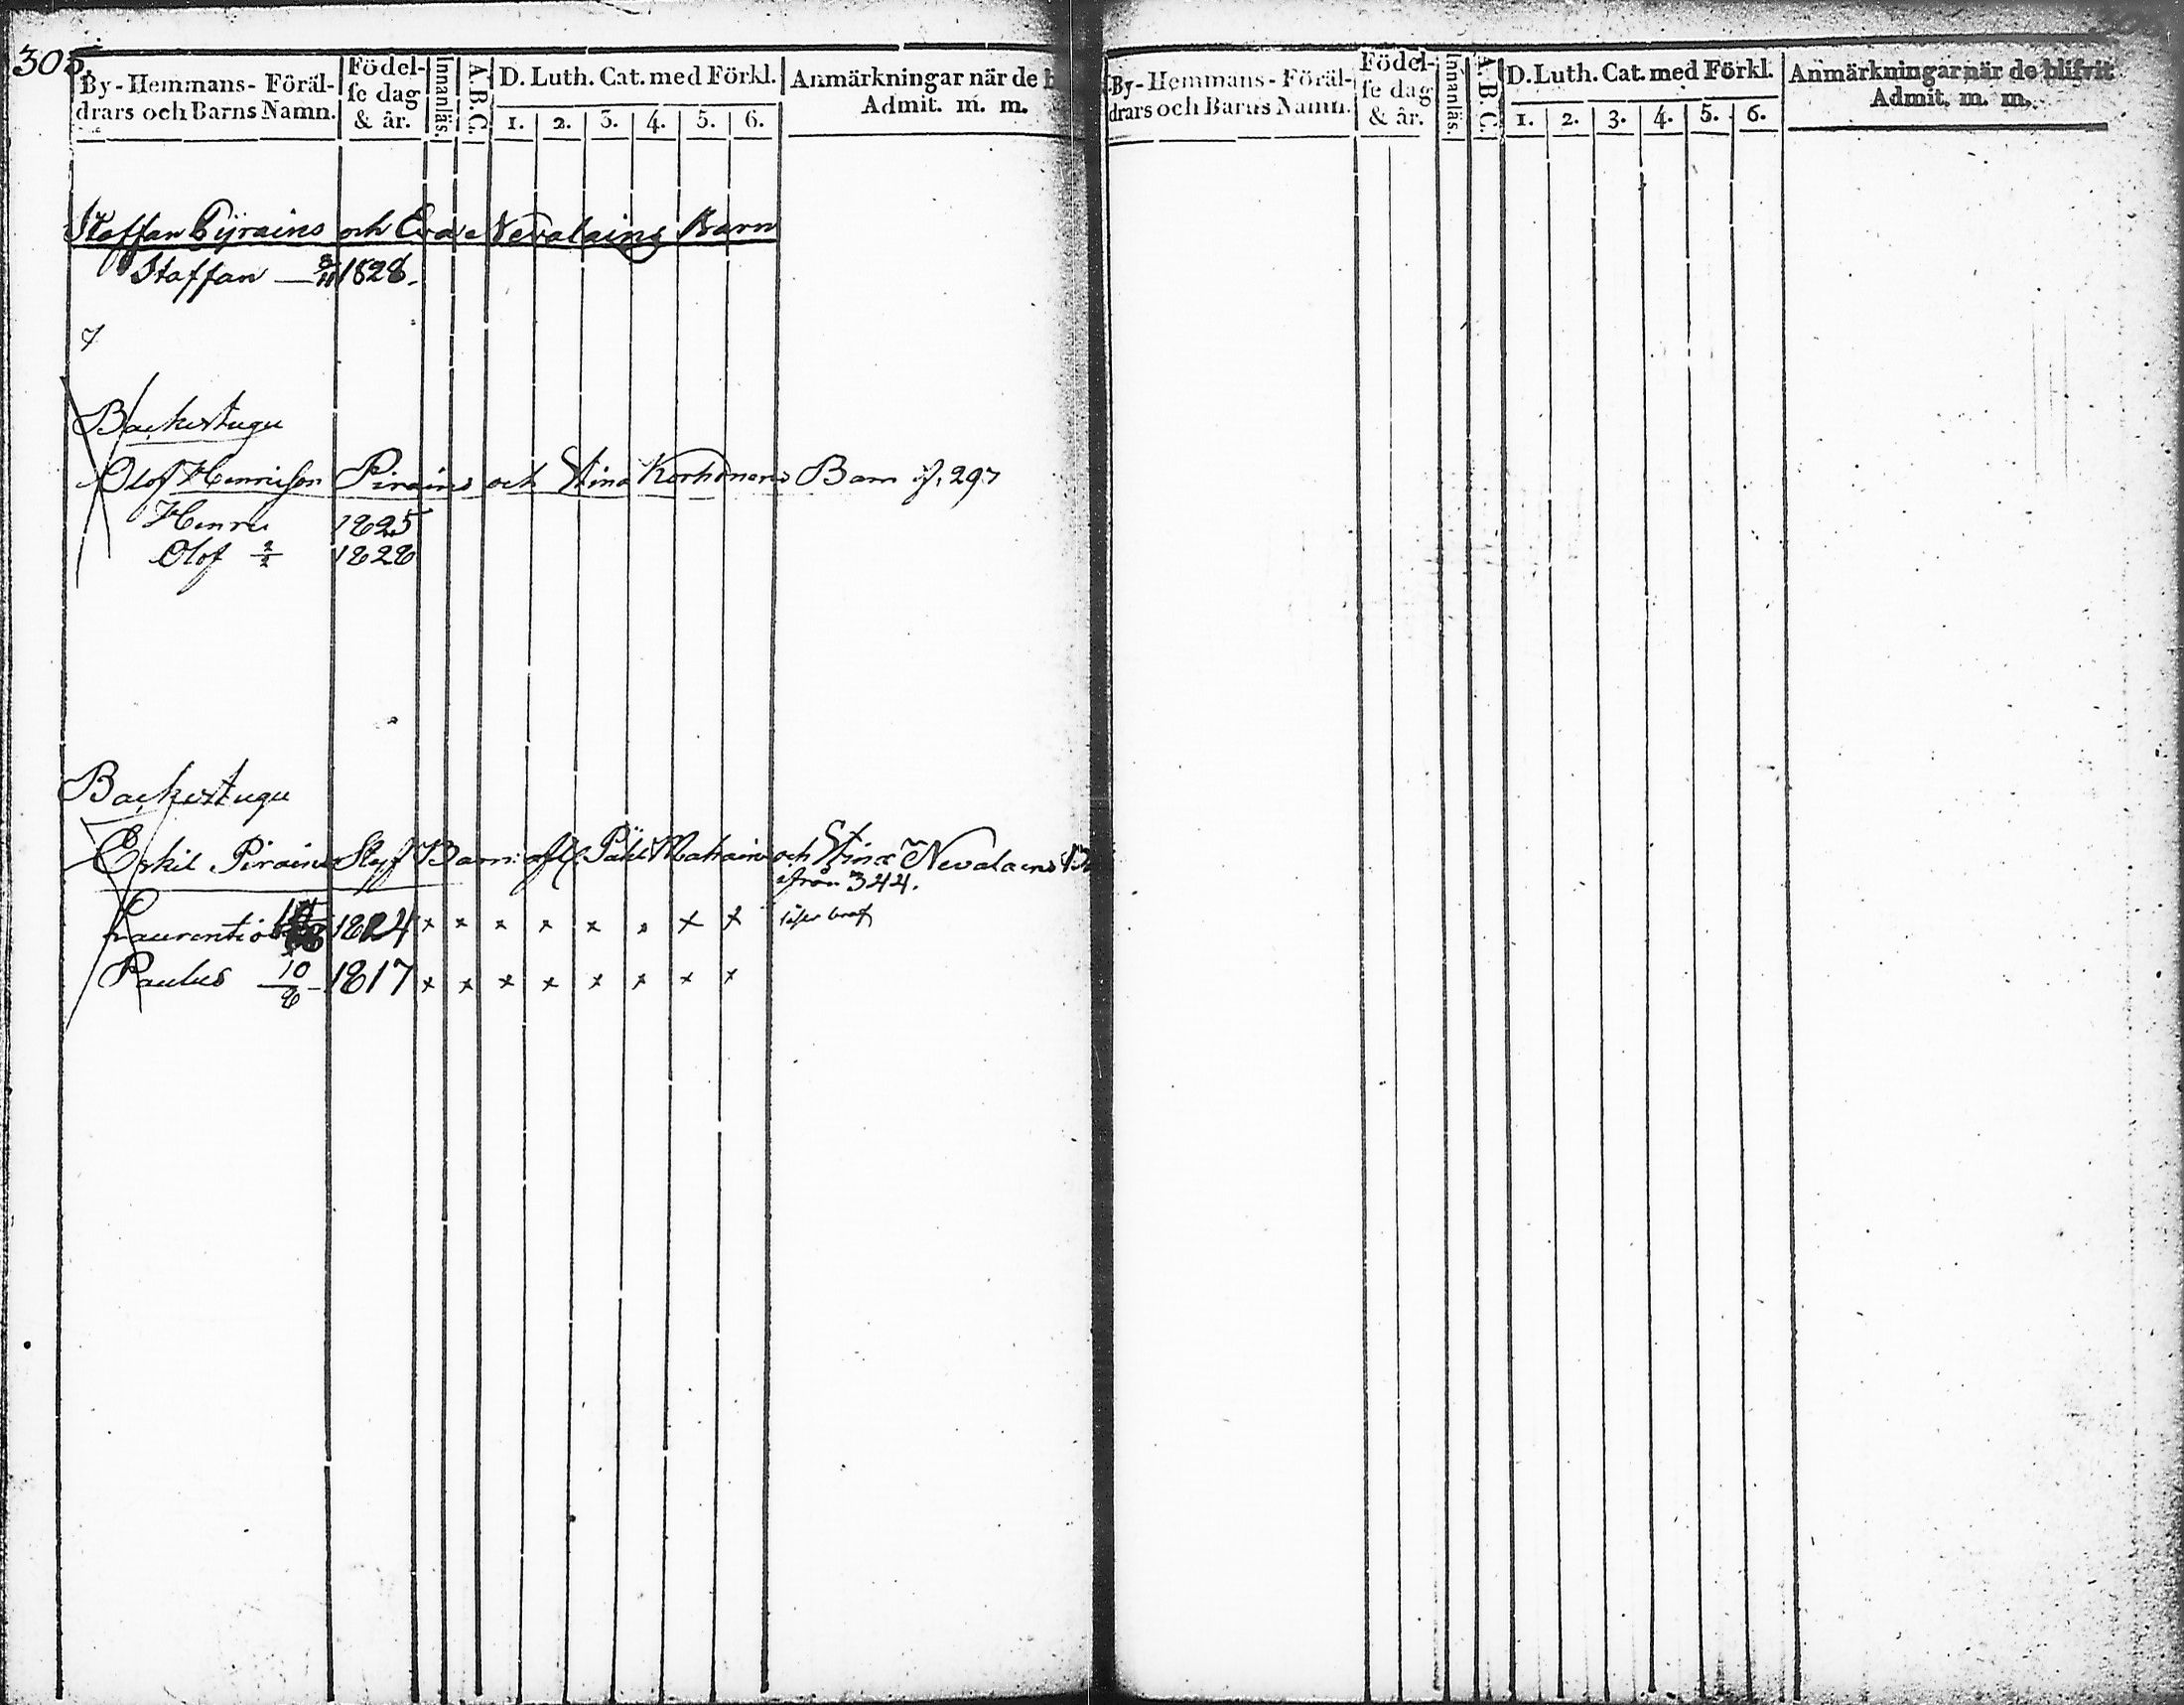 305.
By-Hemmans-Föräl-
drars och Barns Namn.
Födel-
se dag
& år.
Innanläs.
A.B.C.
D. Luth. Cat. med Förkl.
1. 2. 3. 4. 5. 6.
Anmärkningar när de b
Admit. m. m.
Staffan Pÿrains och Eva Nevalains Barn
Staffan — 3/11 1828.
Backstugu
Olof Henricson Pirains och Stina Korhonens Barn f. 297
Henric 1825
Olof 2/2 1828
Backstugu
Eskil Pirains Styf Barn: afl. Påhl Mahains och Stina Nevalains
ifrån 344.
Laurentio 1824 x x x x x x x
Paulus 10/8 1817 x x x x x x x x
By-Hemmans-Föräl-
drars och Barns Namn.
Födel-
se dag
& år.
Innanläs.
A.B.C.
D. Luth. Cat. med Förkl.
1. 2. 3. 4. 5. 6.
Anmärkningar när de blifvit
Admit. m. m.